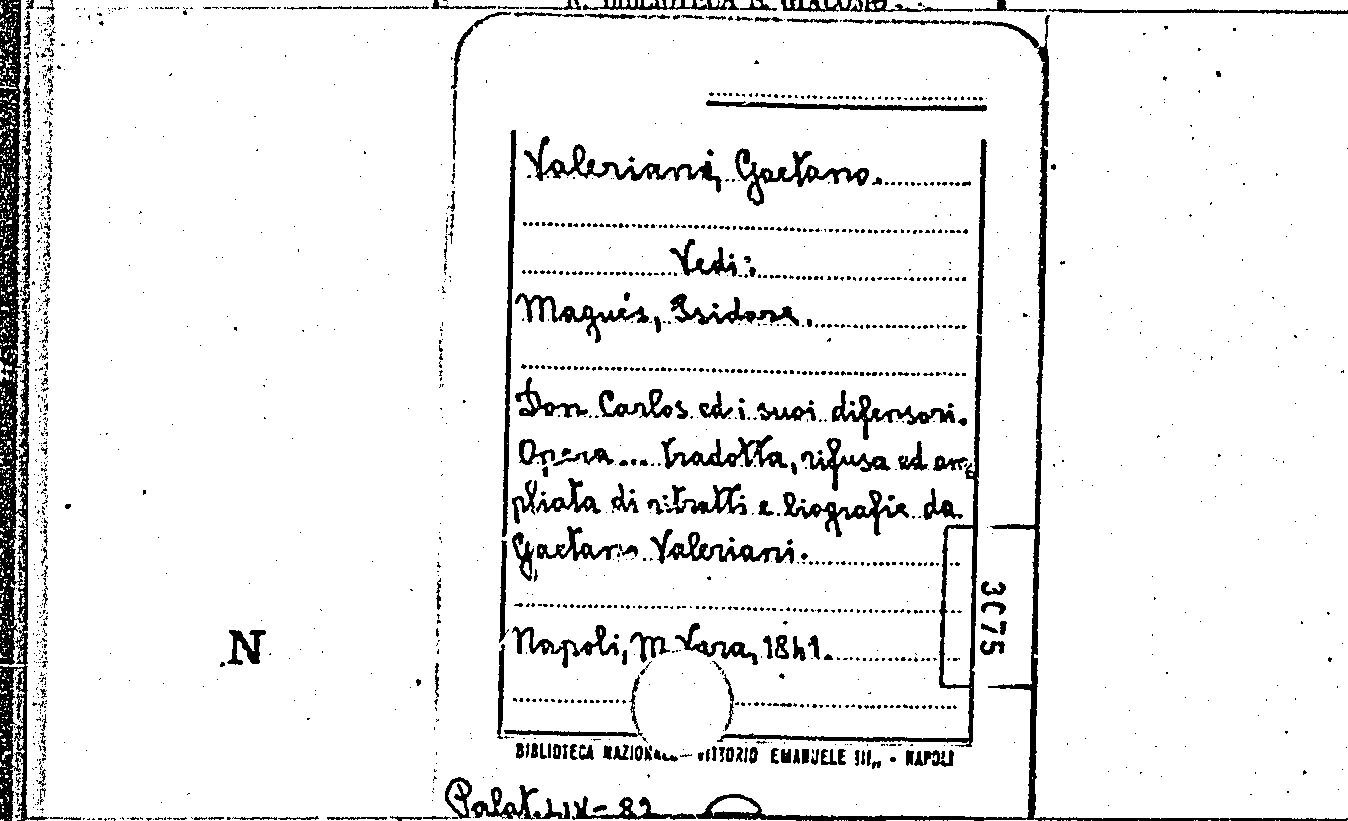 Valeriani, Gaetano.
Vedi:
Magués, Isidore.
Don Carlos ed i suoi difensori.
Opera... tradotta, rifusa ed am=
pliata di ritratti e biografie da
Gaetano Valeriani.
3075
N
Napoli, M. Vara, 1841.
BIBLIOTECA NAZIONALE VITTORIO EMANUELE III„ - NAPOLI
Palat. LIX-82